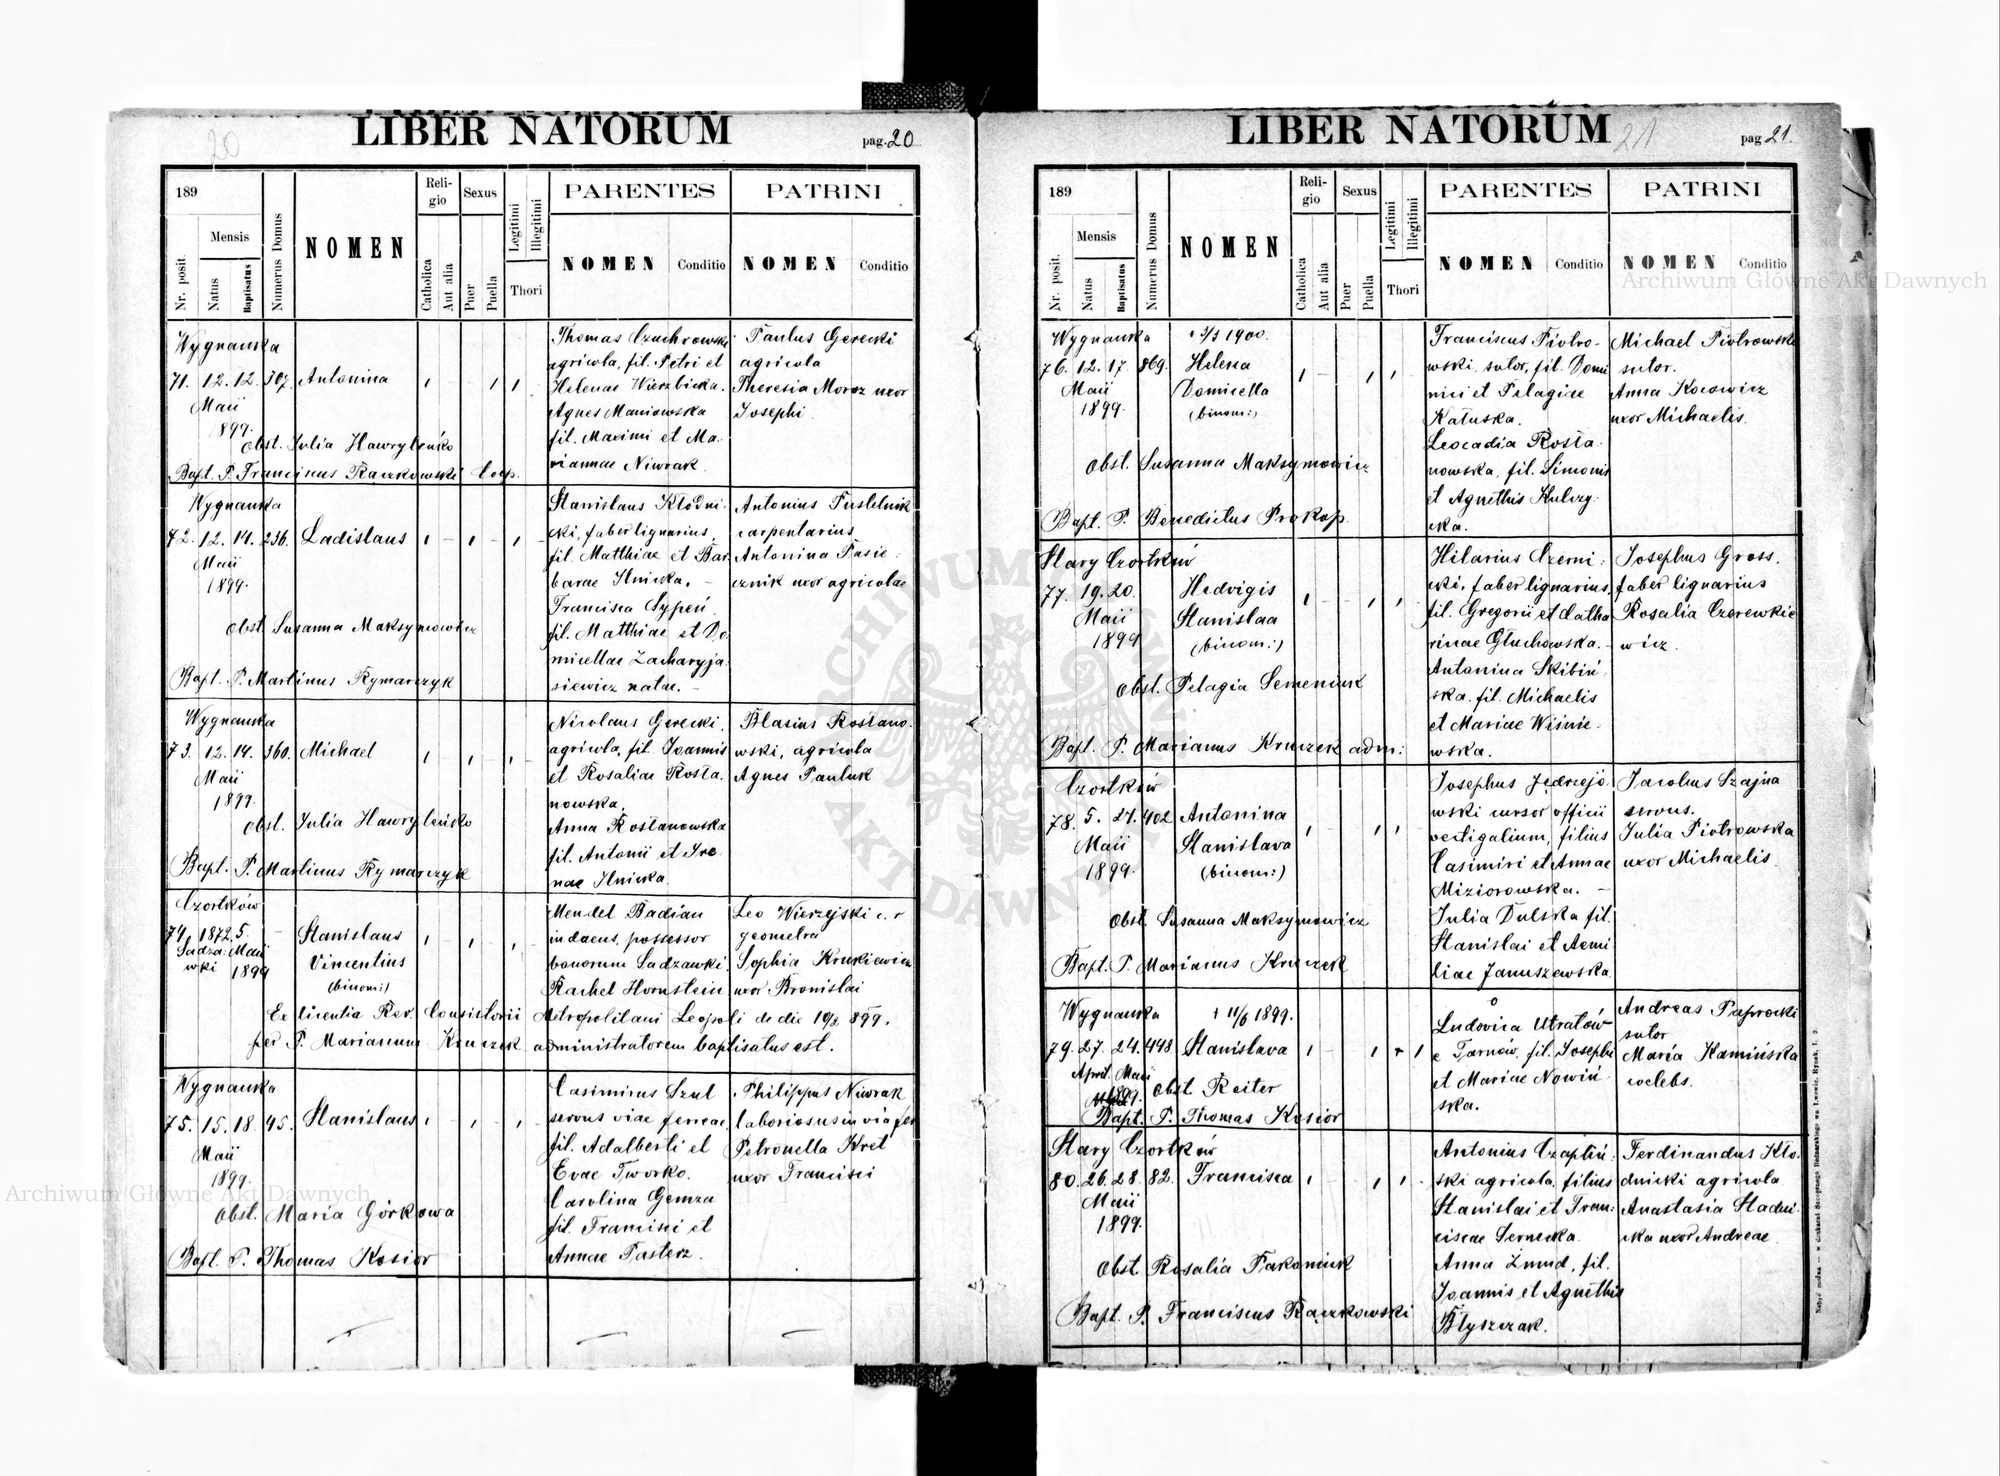 LIBER NATORUM
20
pag. 20
189
Mensis
Nr. posit.
Natus
Baptisatus
Numerus Domus
NOMEN
Reli-
gio
Catholica
Aut alia
Sexus
Puer
Puella
Legitimi
Illegitimi
Thori
PARENTES
NOMEN
Conditio
PATRINI
NOMEN
Conditio
Wygnanka
71. 12. 12. 307. Antonina
Maii
1899.
Obst. Julia Hawryleńko
Bapt. P. Franciscus Raczkowski Coop.
Thomas Czuchrowski
agricola, fil. Petri et
Helenae Wierzbicka.
Agnes Maniowska
fil. Maximi et Ma-
riannae Niwrak.
Paulus Gerecki
agricola
Theresia Moroz uxor
Josephi
Wygnanka
72. 12. 14. 236. Ladislaus
Maii
1899.
Obst. Susanna Maksymowicz
Bapt. P. Martinus Rymarczyk
Stanislaus Kłodni-
cki, faber lignarius,
fil. Matthiae et Bar-
barae Ilnicka. –
Francisca Sypeń
fil. Matthiae et Do-
micellae Zacharyja-
siewicz natae. –
Antonius Pustelnik
carpentarius
Antonina Pasie-
cznik uxor agricolae
Wygnanka
73. 12. 14. 360. Michael
Maii
1899.
Obst. Julia Hawryleńko
Bapt. P. Martinus Rymarczyk
Nicolaus Gerecki,
agricola, fil. Joannis
et Rosaliae Rosta-
nowska.
Anna Rostanowska
fil. Antonii et Ire-
nae Ilnicka.
Blasius Rostano-
wski, agricola
Agnes Pauluk
Czortków
74. 1872 5. – Stanislaus
Sadza- Maii
wki 1899
Vincentius
(binom:)
Mendel Badian
judaeus, possessor
bonorum Sadzawki.
Rachel Hornstein
Leo Wierzejski c. r
geometra
Sophia Krukiewicz
uxor Bronislai
Ex licentia Rev. Consistorii Metropolitani Leopoli de die 10/3 899.
per P. Marianum Kruczek administratorem baptisatus est.
Wygnanka
75. 15. 18. 45. Stanislaus
Maii
1899.
Obst. Maria Górkowa
Bapt. P. Thomas Kosior
Casimirus Szul
servus viae ferreae,
fil. Adalberti et
Evae Tworko.
Carolina Gemza
fil. Francisci et
Annae Pasterz.
Philippus Niwrak
laboriosus in via fer
Petronella Kret
uxor Francisci
LIBER NATORUM
21
pag 21.
189
Mensis
Nr. posit.
Natus
Baptisatus
Numerus Domus
NOMEN
Reli-
gio
Catholica
Aut alia
Sexus
Puer
Puella
Legitimi
Illegitimi
Thori
PARENTES
NOMEN
Conditio
PATRINI
NOMEN
Conditio
Wygnanka
76. 12. 17. 869. Helena
Maii
1899.
Domicella
(binom:)
Obst. Susanna Maksymowicz
Bapt. P. Benedictus Prokop.
Franciscus Piotro-
wski, sutor, fil. Domi
nici et Pelagiae
Katuska.
Leocadia Rosta-
nowska, fil. Simonis
et Agnethis Kulczy-
cka.
Michael Piotrowski
sutor.
Anna Kocowicz
uxor Michaelis.
Stary Czortków
77. 19. 20. Hedvigis
Maii
1899
Stanislaa
(binom:)
Obst. Pelagia Semeniuk
Bapt. P. Marianus Kruczek adm:
Hilarius Czerni-
cki, faber lignarius,
fil. Gregorii et Catha
rinae Głuchowska. –
Antonina Skibiń-
ska, fil. Michaelis
et Mariae Wiśnie-
wska.
Josephus Gross,
faber lignarius
Rosalia Czerewkie
wicz.
Czortków
78. 5. 21. 402 Antonina
Maii
1899.
Stanislava
(binom:)
Obst. Susanna Maksymowicz
Bapt. P. Marianus Kruczek
Josephus Jędrzejo-
wski cursor officii
vectigalium, filius
Casimiri et Annae
Miziorowska. –
Julia Dulska fil.
Stanislai et Aemi-
liae Januszewska.
Jacobus Szajna
servus.
Julia Piotrowska
uxor Michaelis.
Wygnanka + 11/6 1899.
79. 27. 24. 448 Stanislava
April. Maii
1899.
Obst. Reiter
Bapt. P. Thomas Kosior
Ludovica Utratów
e Tarnów, fil. Josephi
et Mariae Nowiń-
ska.
Andreas Paprocki
sutor
Maria Kamińska
coelebs.
Stary Czortków
80. 26. 28. 82. Francisca
Maii
1899.
Obst. Rosalia Pakoniuk
Bapt. P. Franciscus Raczkowski
Antonius Czapliń-
ski agricola, filius
Stanislai et Fran-
ciscae Sernecka.
Anna Żmud, fil.
Joannis et Agnethis
Błyszczak.
Ferdinandus Kło-
dnicki agricola
Anastasia Stadni-
cka uxor Andreae
Archiwum Główne Akt Dawnych
Archiwum Główne Akt Dawnych
ARCHIWUM GŁÓWNE AKT DAWNYCH